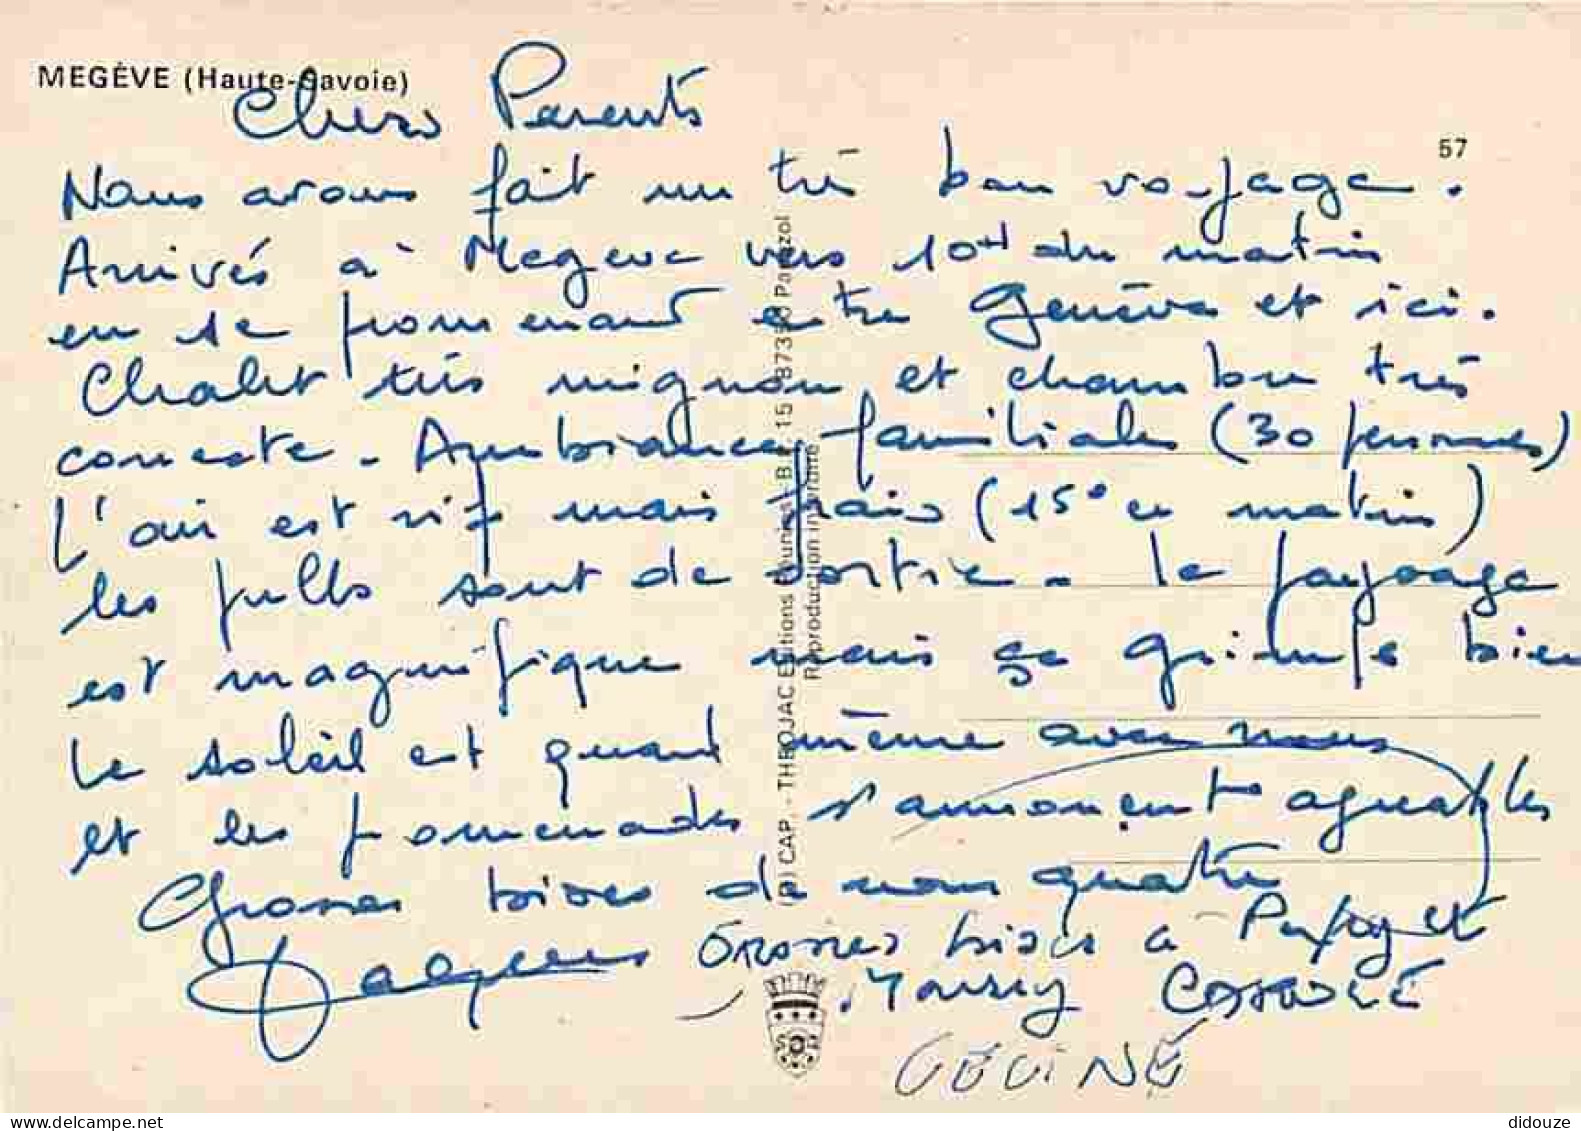 MEGÈVE (Haute-Savoie)
57
Chers Parents
Nous avons fait un très bon voyage.
Arrivés à Megève vers 10H du matin
en se promenant entre Genève et ici.
Chalet très mignon et chambre très
correcte. Ambiance familiale (30 personnes)
L'air est vif mais frais (15° ce matin)
les pulls sont de sortie. Le paysage
est magnifique mais ça grimpe bien
le soleil est quand même avec nous
et les promenades s'annoncent agréables
Grosses bises de nous quatre
Jacques
Grosses bises à Papy et
Mamy
CÉLINE
(P) CAP. - THEOJAC Editions B.P. 15 - 87350 Panazol
Reproduction interdite
didouze